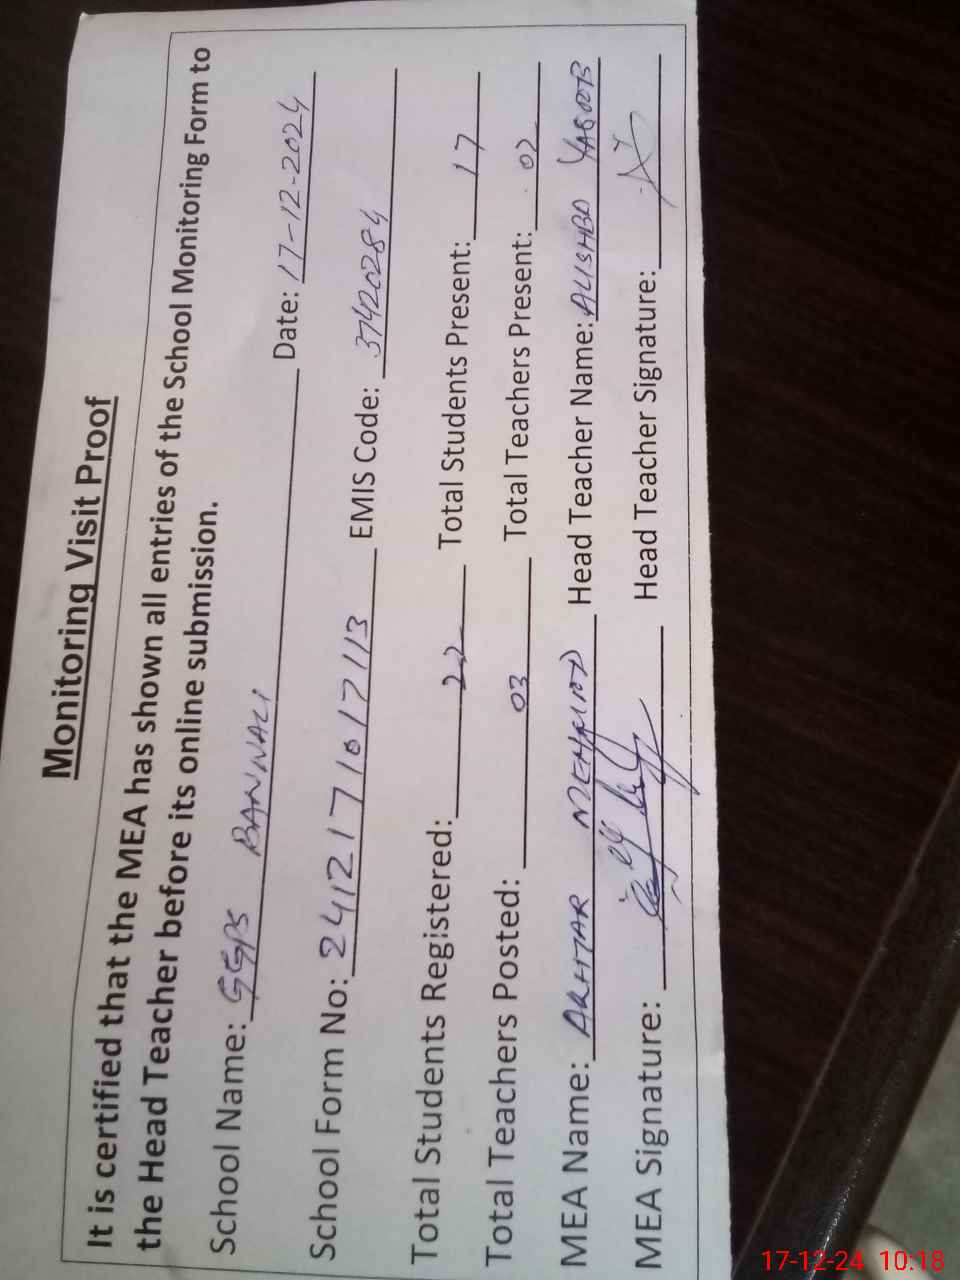 Monitoring Visit Proof
It is certified that the MEA has shown all entries of the School Monitoring Form to
the Head Teacher before its online submission.
School Name: GGPS BANNALI Date: 17-12-2024
School Form No: 2412171017113 EMIS Code: 37420284
Total Students Registered: 22 Total Students Present: 17
Total Teachers Posted: 03 Total Teachers Present: 02
MEA Name: AKHTAR MEHMOOD Head Teacher Name: ALISHBA YAQOOB
MEA Signature: Head Teacher Signature:
17-12-24 10:18